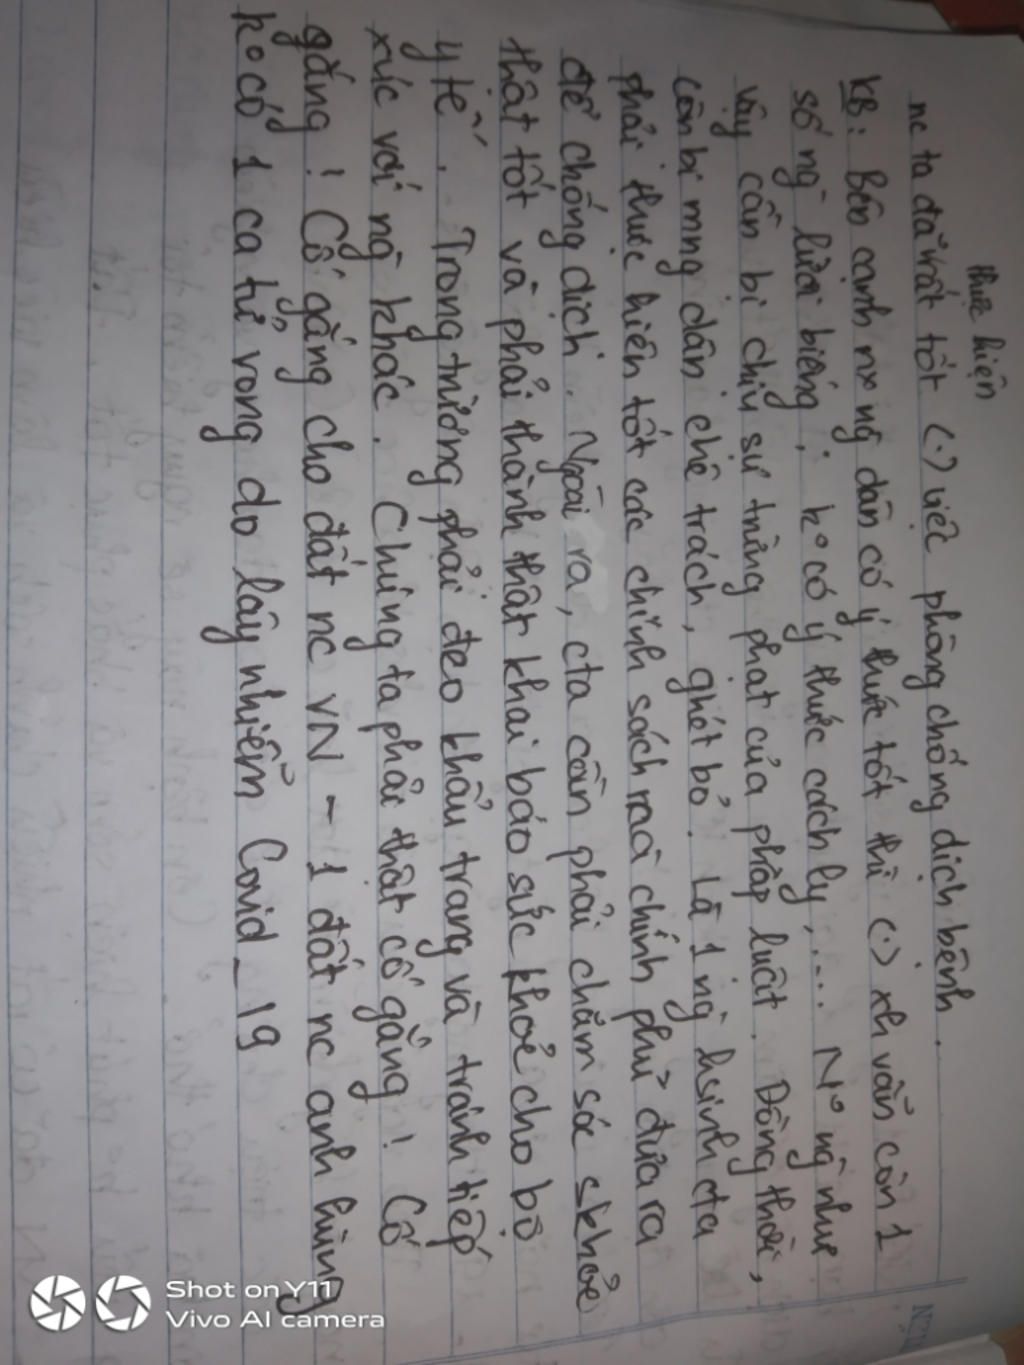 thực hiện
nc ta đã rất tốt (.) việc phòng chống dịch bệnh.
KB: Bên cạnh nx ng dân có ý thức tốt thì (.) xh vẫn còn 1
số ng lười biếng; ko có ý thức cách ly,.... N° ng như
vậy cần bị chịu sự trừng phạt của pháp luật. Đồng thời,
còn bị mng dân chê trách, ghét bỏ. Là 1 ng hsinh cta
phải thực hiện tốt các chính sách mà chính phủ đưa ra
để chống dịch. Ngoài ra, cta cần phải chăm sóc skhỏe
thật tốt và phải thành thật khai báo sức khoẻ cho bộ
y tế. Trong trường phải đeo khẩu trang và tránh tiếp
xúc với ng khác. Chúng ta phải thật cố gắng! Cố
gắng! Cố gắng cho đất nc VN - 1 đất nc anh hùng
ko có 1 ca tử vong do lây nhiễm Covid_19
Shot on Y11
Vivo AI camera